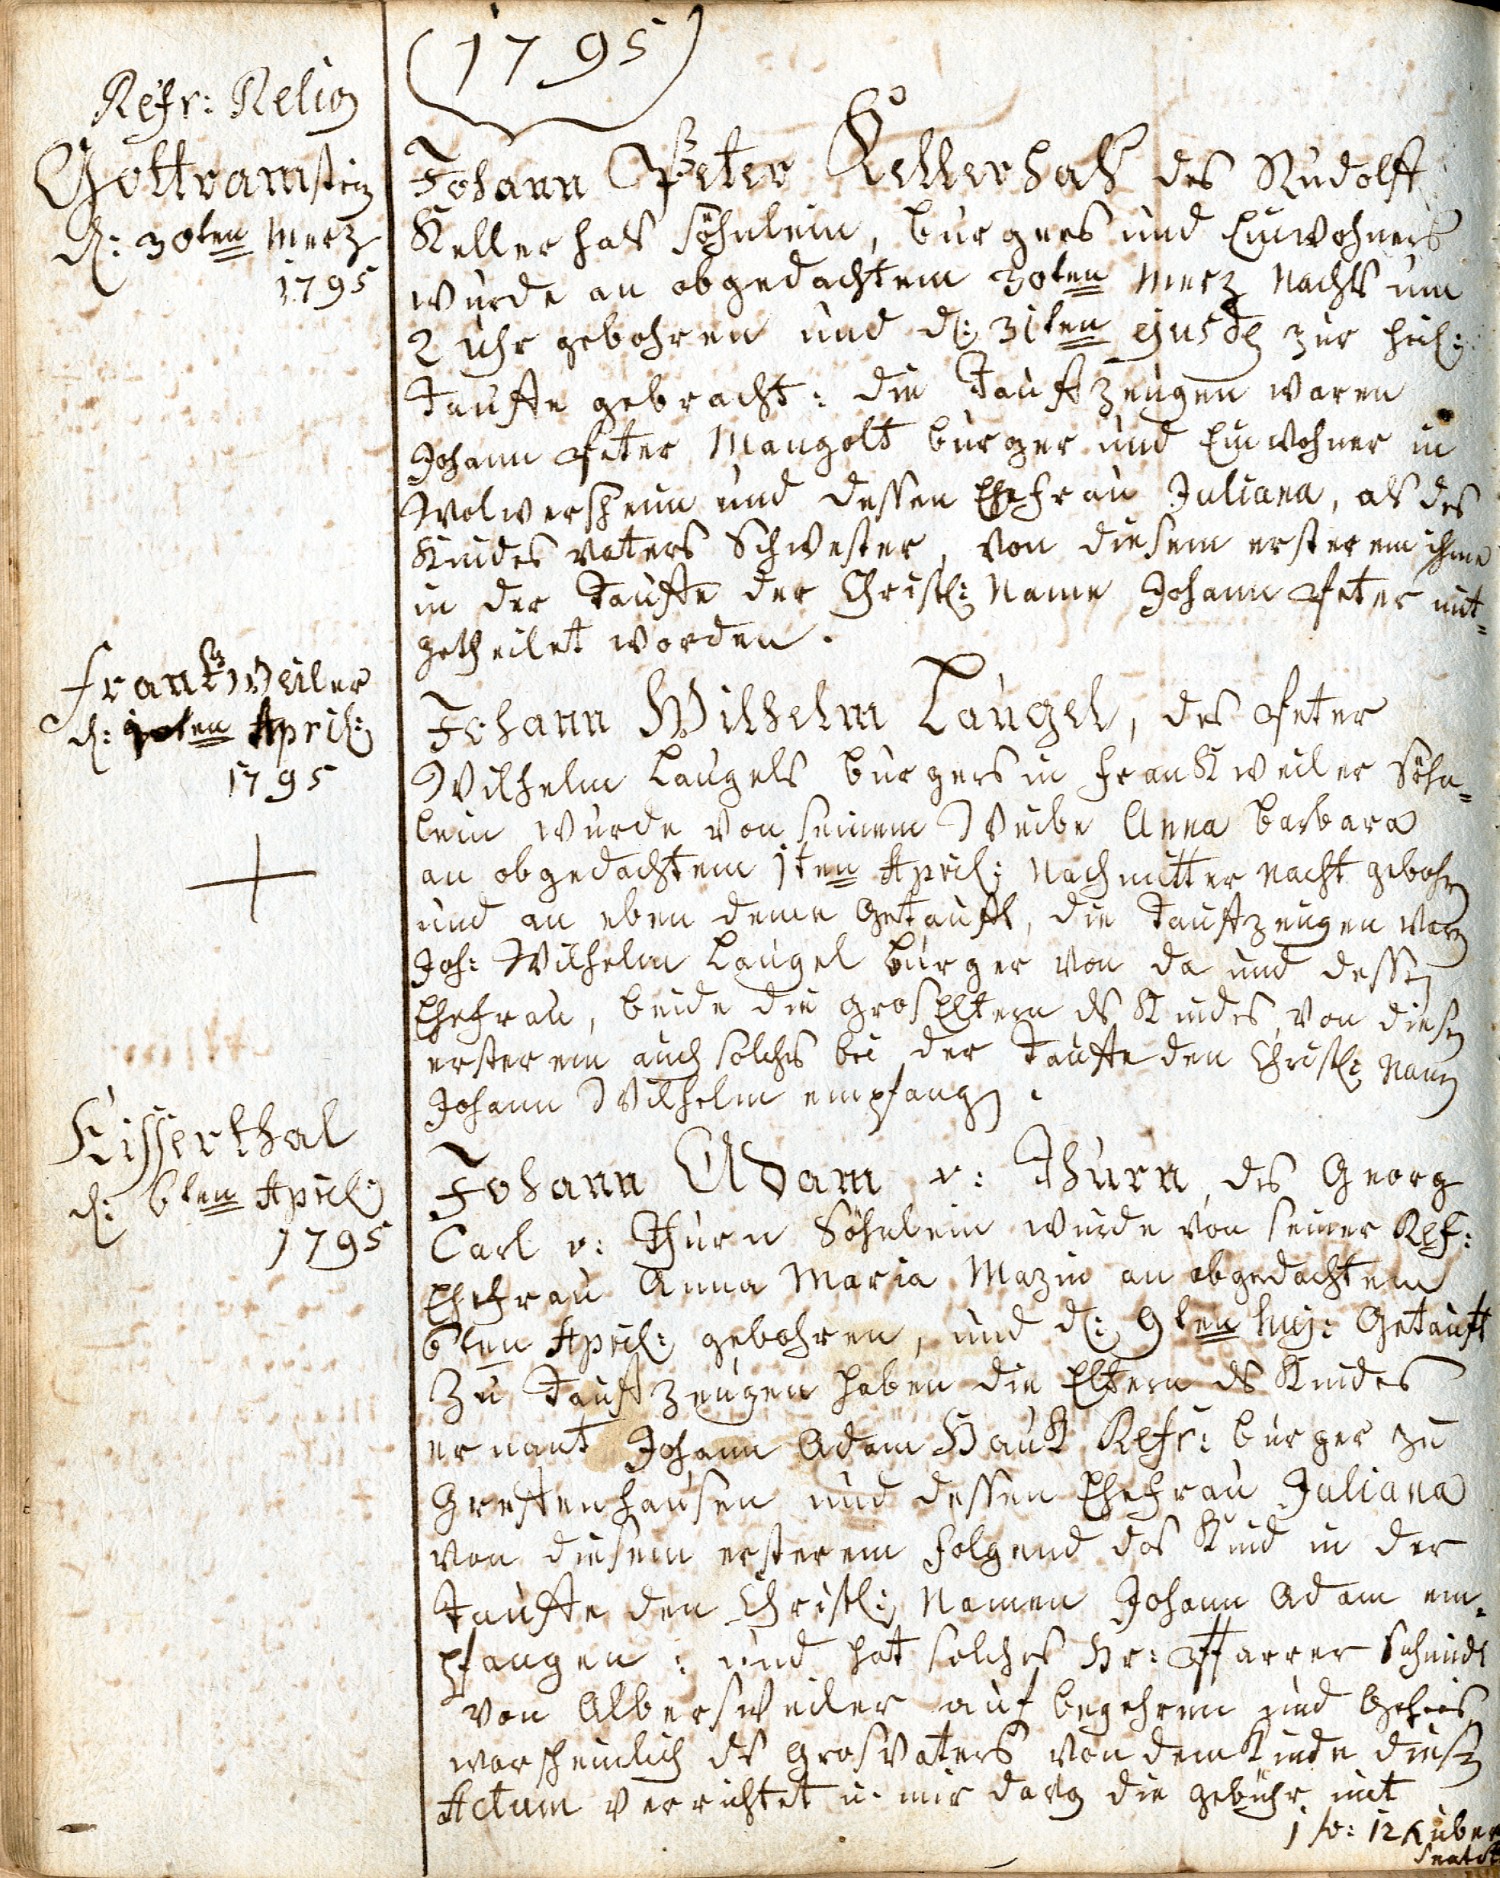 (1795)
Refr: Religi
Gottramstein
d: 30ten Merz
1795
Johann Peter Kellerhals des Rudolff
Kellerhals söhnlein, burgers und Einwohners
wurde an obgedachtem 30ten Merz Nachts um
2 Uhr gebohren und d: 31ten ejusd zur heil:
Tauffe gebracht: die Taufzeugen waren
Johann Peter Mangolt burger und Einwohner in
Wolmersheim und dessen Ehefrau Juliana, als des
Kindes vaters Schwester, von diesem ersterem ihme
in der Tauffe der Christl: Name Johann Peter mit=
getheilet worden.
Frankweiler
d: 1ten April:
1795
Johann Wilhelm Laugel, des Peter
Wilhelm Laugels burgers in Frankweiler Söhn=
lein wurde von seinem Weibe Anna barbara
an obgedachtem 1ten April: Nachmitter Nacht gebohrn
und an eben deme Getauft, die Taufzeugen warn
Joh: Wilhelm Laugel burger von da und dessn
Ehefrau, beide die grosEltern ds Kindes, von diesn
ersterem auch solches bei der Tauffe den Christl: Namn
Johann Wilhelm empfangn.
Kisserthal
d: 6ten April:
1795
Johann Adam v: Thurn, des Georg
Carl v: Thurn Söhnlein wurde von seiner Ref:
Ehefrau Anna Maria Mazin an obgedachtem
6ten April: gebohren, und d: 9ten huj: Getauft
Zu Taufzeugen haben die Eltern ds Kindes
ernant Johann Adam Hauk Refr: burger zu
Greffenhausen und dessen Ehefrau Juliana
von diesem ersterem folgend das Kind in der
Tauffe den Christl: Namen Johann Adam em=
pfangen: und hat solches Hr: Pfarrer Schmidt
von Albersweiler auf begehren und Geheis
warscheinlich ds Grosvaters von dem Kinde diesn
Actum verrichtet u. mir davon die gebühr mit
1 fl: 12 X über